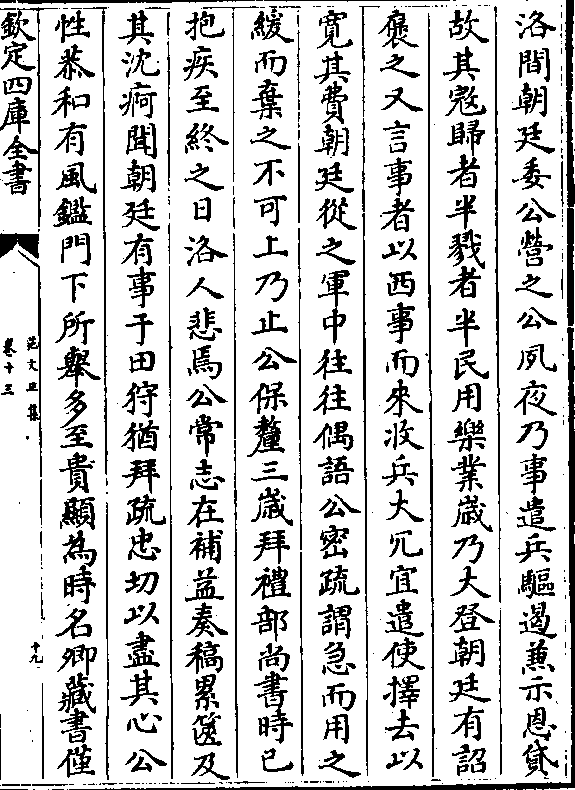 洛間朝廷委公營之公夙夜乃事遣兵驅遏兼示恩貸
故其寇歸者半戮者半民用樂業歳乃大登朝廷有詔
褒之又言事者以西事而來收兵大冗宜遣使擇去以
寛其費朝廷從之軍中往往偶語公密疏謂急而用之
緩而棄之不可上乃止公保釐三歳拜禮部尚書時已
抱疾至終之日洛人悲焉公常志在補益奏稿累篋及
其沈痾聞朝廷有事于田狩猶拜疏忠切以盡其心公
性恭和有風鑑門下所舉多至貴顯為時名卿藏書僅
欽定四庫全書
范文正集
卷十三
十九